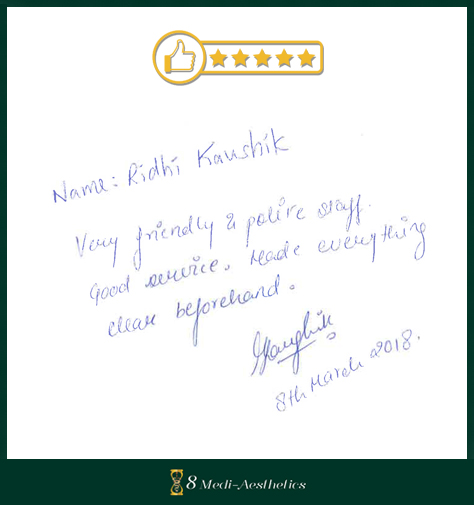 Name: Ridhi Kaushik
Very friendly & polite staff.
Good service. Made everything
clear beforehand.
8th March 2018.
8 Medi-Aesthetics